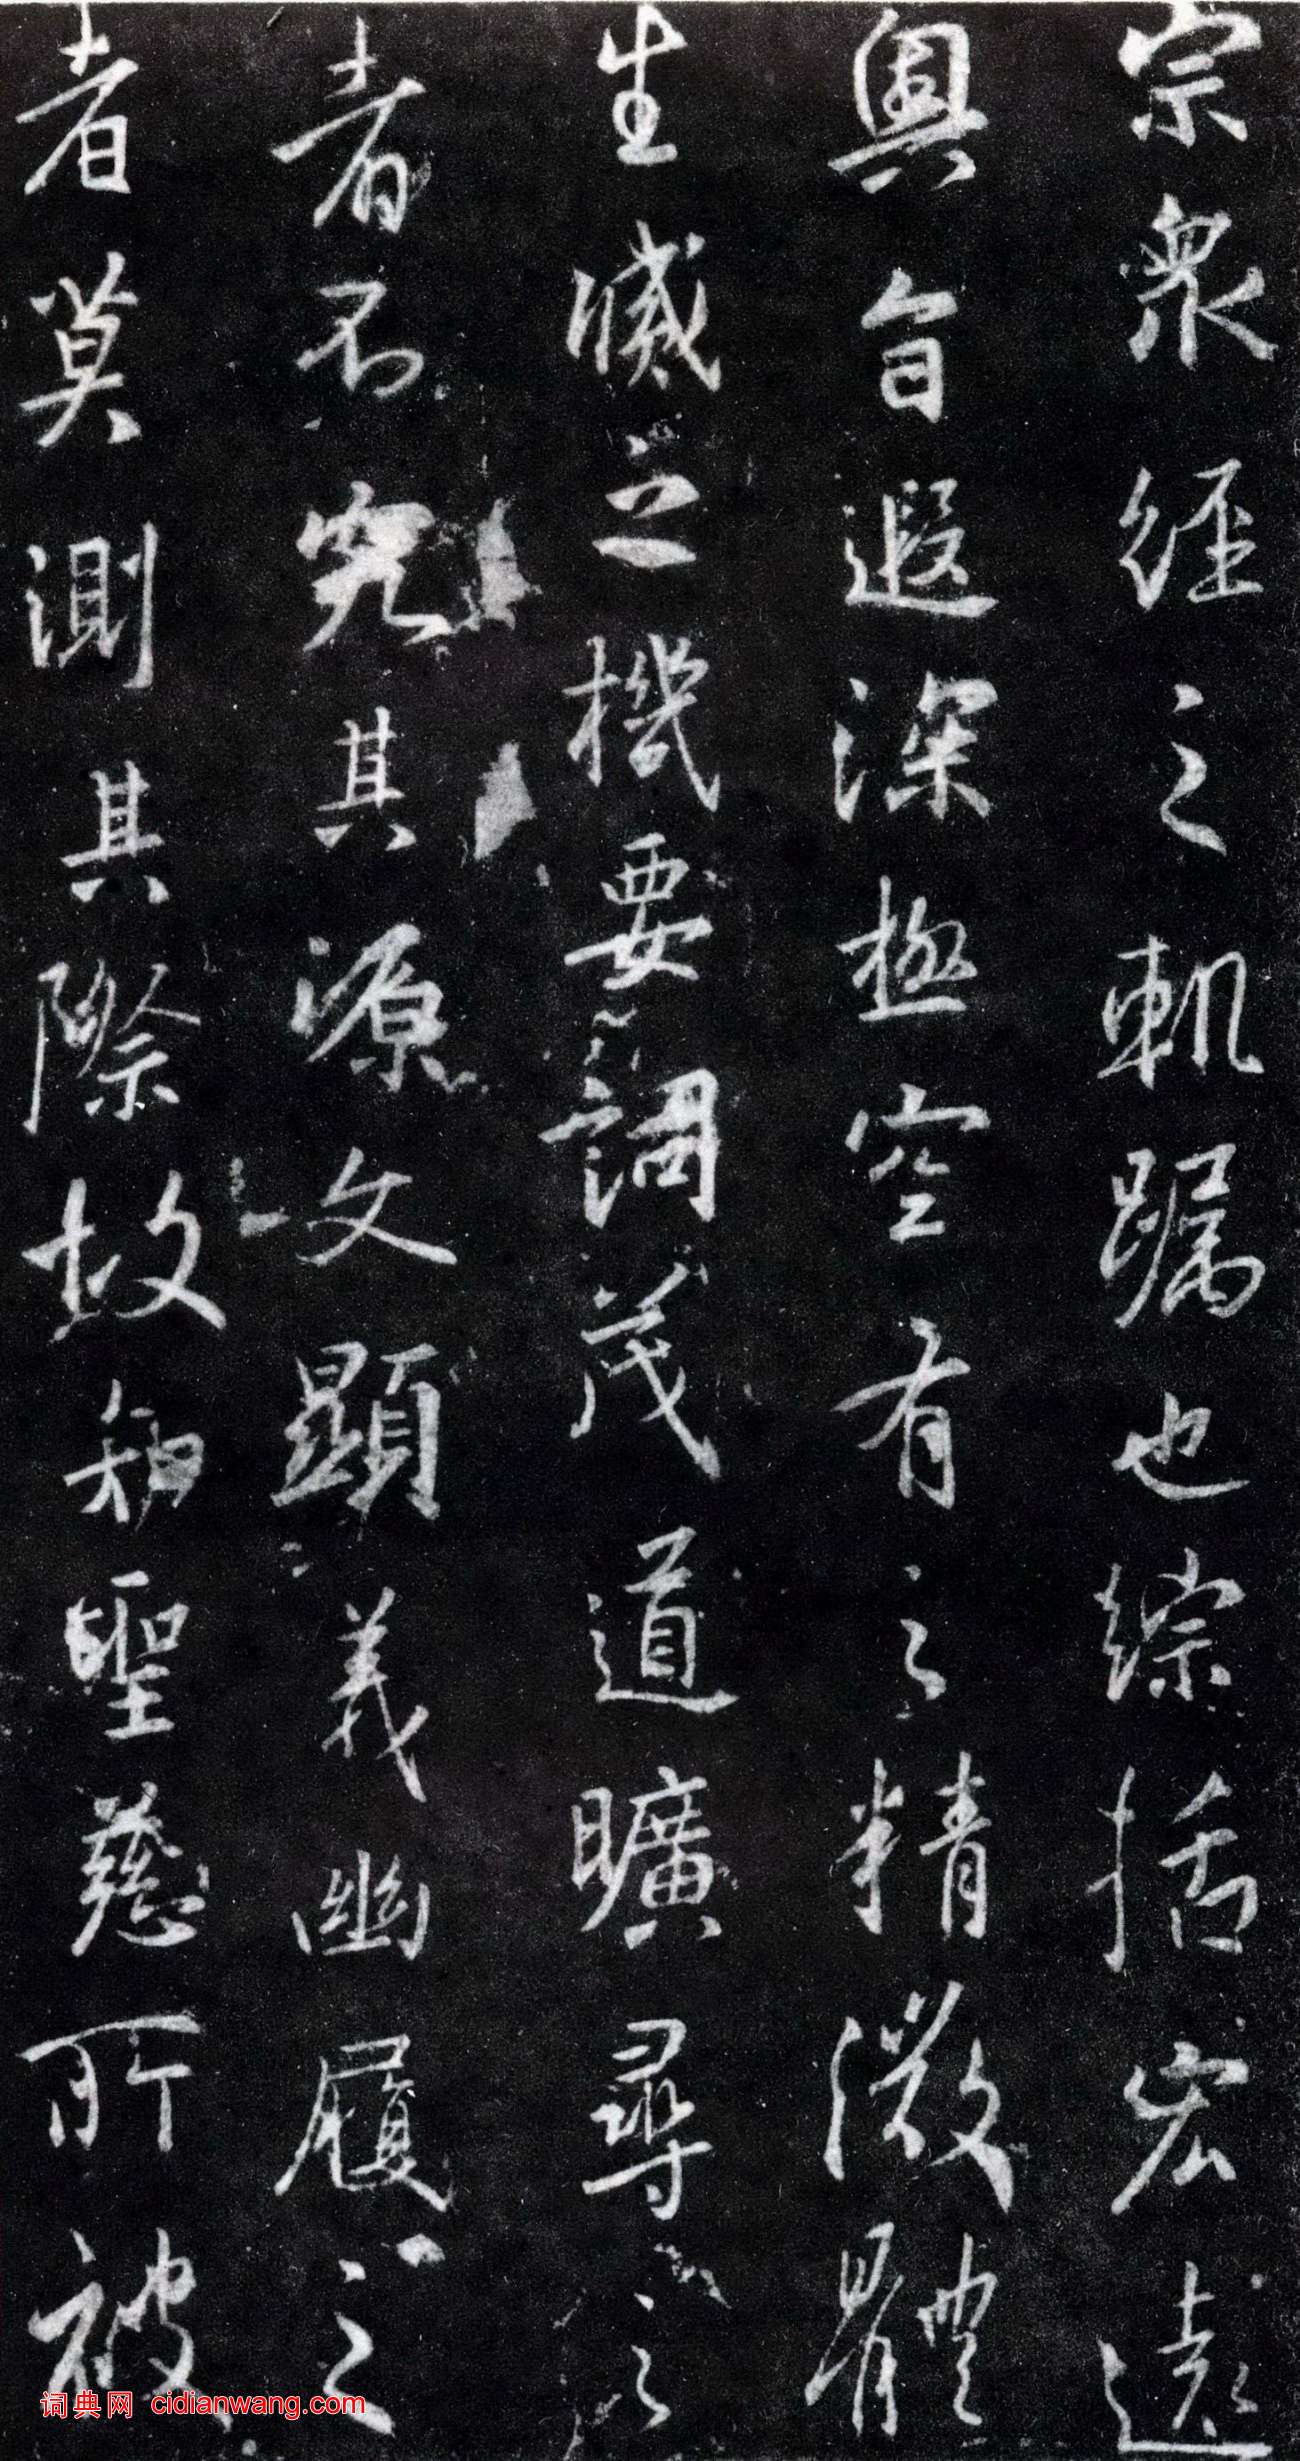 宗眾經之軌躅也綜括宏遠
奧旨遐深極空有之精微體
生滅之機要詞茂道曠尋之
者不究其源文顯義幽履之
者莫測其際故知聖慈所被
词典网 cidianwang.com